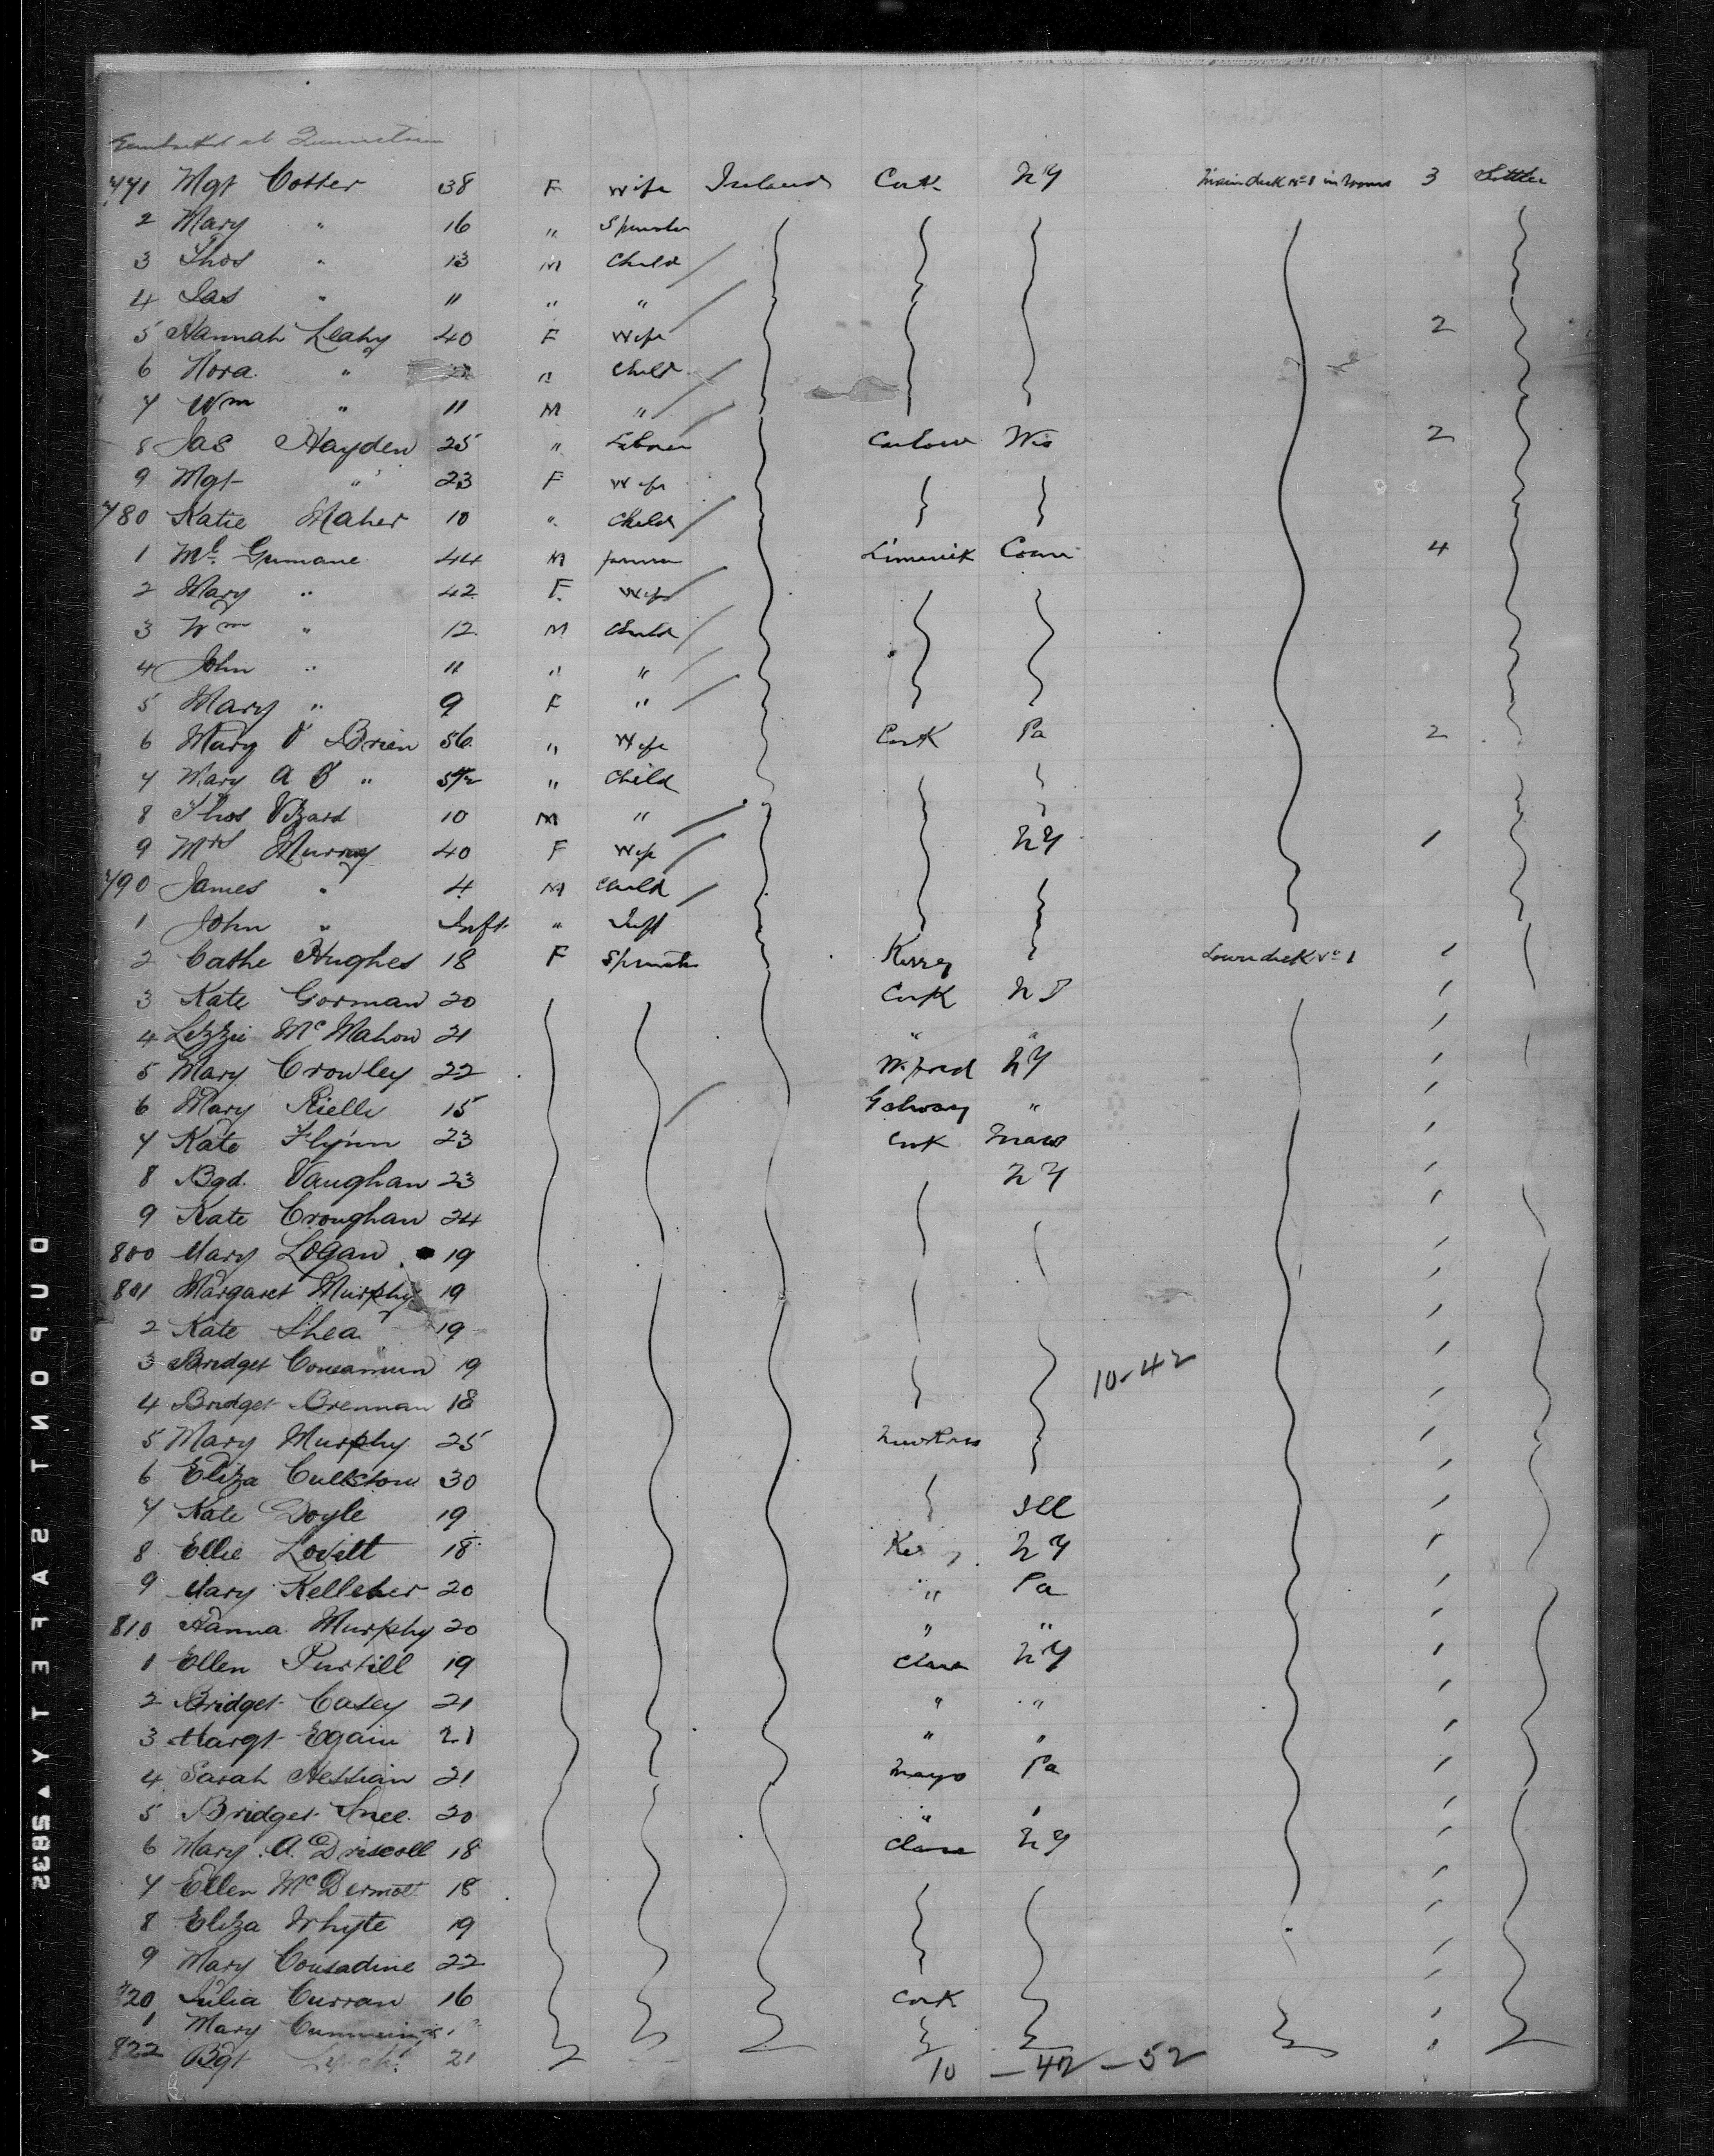 Embarked at Queenstown
771 Mgt Cotter 38 F Wife Ireland Cork NY Main deck No 1 in rooms 3 Settler
2 Mary " 16 " Spinster
3 Thos " 13 M Child
4 Jas " 11 " "
5 Hannah Leahy 40 F Wife 2
6 Nora " " Child
7 Wm " 11 M "
8 Jas Hayden 25 " Laborer Carlow Wis 2
9 Mgt " 23 F Wife
780 Katie Maher 10 " Child
1 Ml. 44 M farmer Limerick Conn 4
2 Mary " 42 F. Wife
3 Wm " 12 M Child
4 John " 11 " "
5 Mary " 9 F "
6 Mary O Brien 56 " Wife Cork Pa 2
7 Mary A O " " Child
8 Thos Vizard 10 M "
9 Mrs Murray 40 F Wife NY 1
790 James " 4 M Child
1 John " Inft. " Inft
2 Cathe Hughes 18 F Spinster Kerry Lower deck No 1 1
3 Kate Gorman 20 Cork 1
4 Lizzie Mc Mahon 21 " " 1
5 Mary Crowley 22 W.ford NY 1
6 Mary Rielle 15 Galway " 1
7 Kate Flynn 23 Cork Mass 1
8 Bgd. Vaughan 23 NY 1
9 Kate Croughan 24 1
800 Mary Logan 19 1
801 Margaret Murphy 19 1
2 Kate Shea 19 1
3 Bridget 19 10-42 1
4 Bridget Brennan 18 1
5 Mary Murphy 25 New Ross 1
6 Eliza 30 1
7 Kate Doyle 19 Ill 1
8 Ellie Lovett 18 NY 1
9 Mary Kelleher 20 " Pa 1
810 Hanna Murphy 20 " " 1
1 Ellen Purtill 19 Clare NY 1
2 Bridget Casey 21 " " 1
3 Margt Egain 21 " " 1
4 Sarah Hessian 21 Mayo Pa 1
5 Bridget Snee 20 " " 1
6 Mary A Driscoll 18 Clare NY 1
7 Ellen Mc Dermott 18 1
8 Eliza Whyte 19 1
9 Mary Consadine 22 1
820 Julia Curran 16 Cork 1
1 Mary Cummings 1
822 Bgt 21
10 - 42 - 52
DUPONT SAFETY ▲ 2832